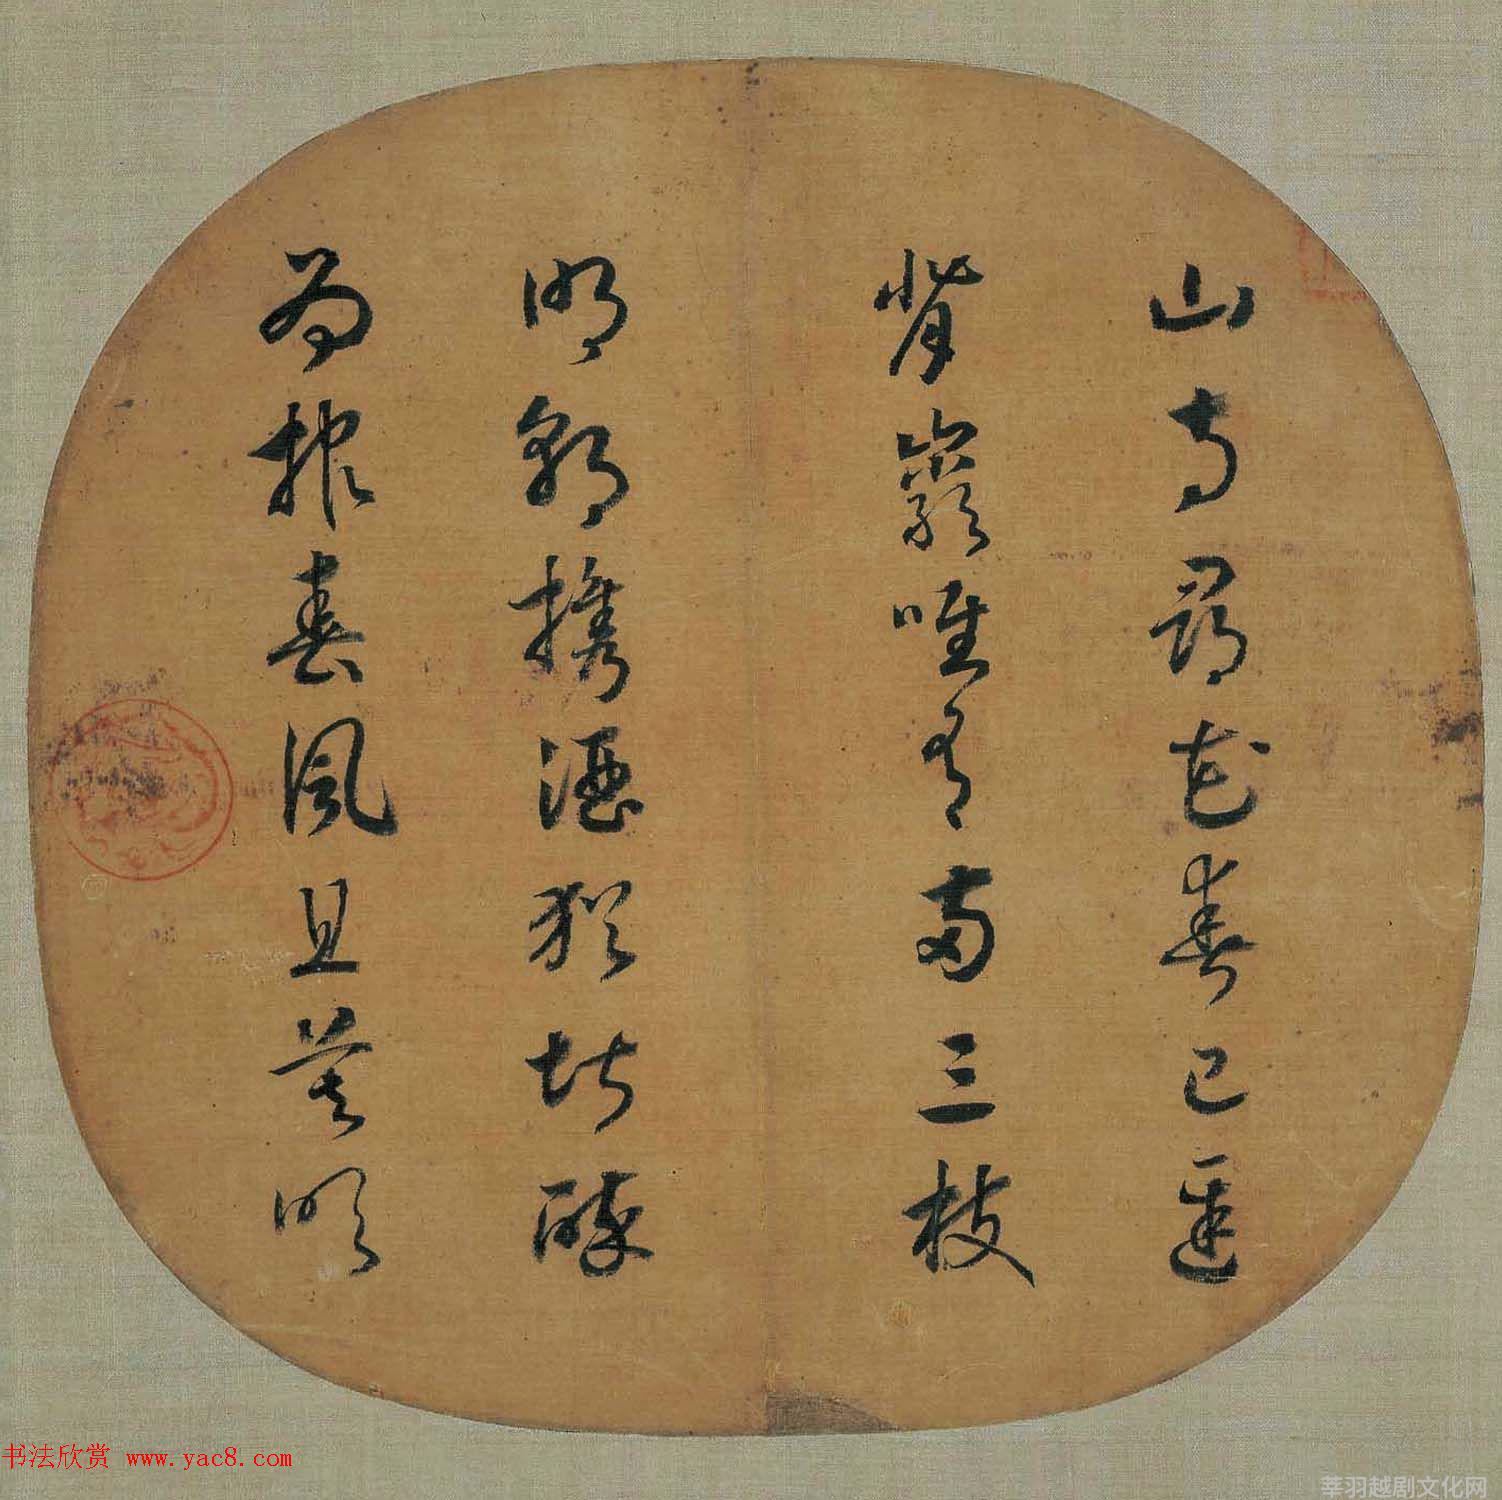 山寺尋花春已遲
背巖唯有兩三枝
明朝攜酒猶堪醉
為報春風且莫吹
书法欣赏 www.yac8.com
莘羽越剧文化网